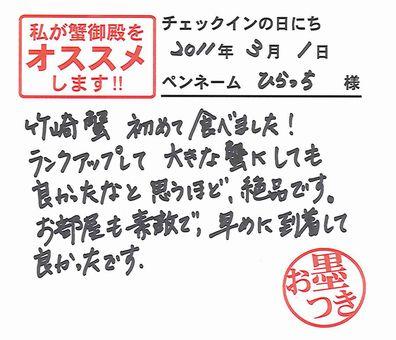 私が蟹御殿を
オススメ
します!!
チェックインの日にち
2011年 3月 1日
ペンネーム ひらっち 様
竹崎蟹 初めて食べました!
ランクアップして 大きな蟹にしても
良かったなと 思うほど、絶品です。
お部屋も素敵で、早めに到着して
良かったです。
お墨つき